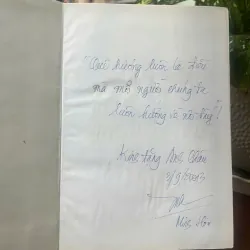 "Quê hương luôn là điều
mà mỗi người chúng ta
luôn hướng về nó đấy"!
Kính tặng Anh
5/9/2023
Hoa